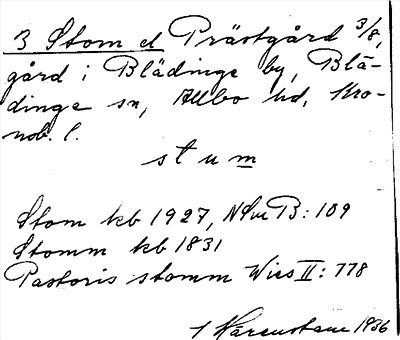 3 Stom el Prästgård 3/8,
gård i Blädinge by, Blä-
dinge sn, Allbo hd, Kro-
nob. l.
stum
Stom kb 1927, NSvB: 109
Stomm kb 1831
Pastoris stomm Wies II: 778
1 1936